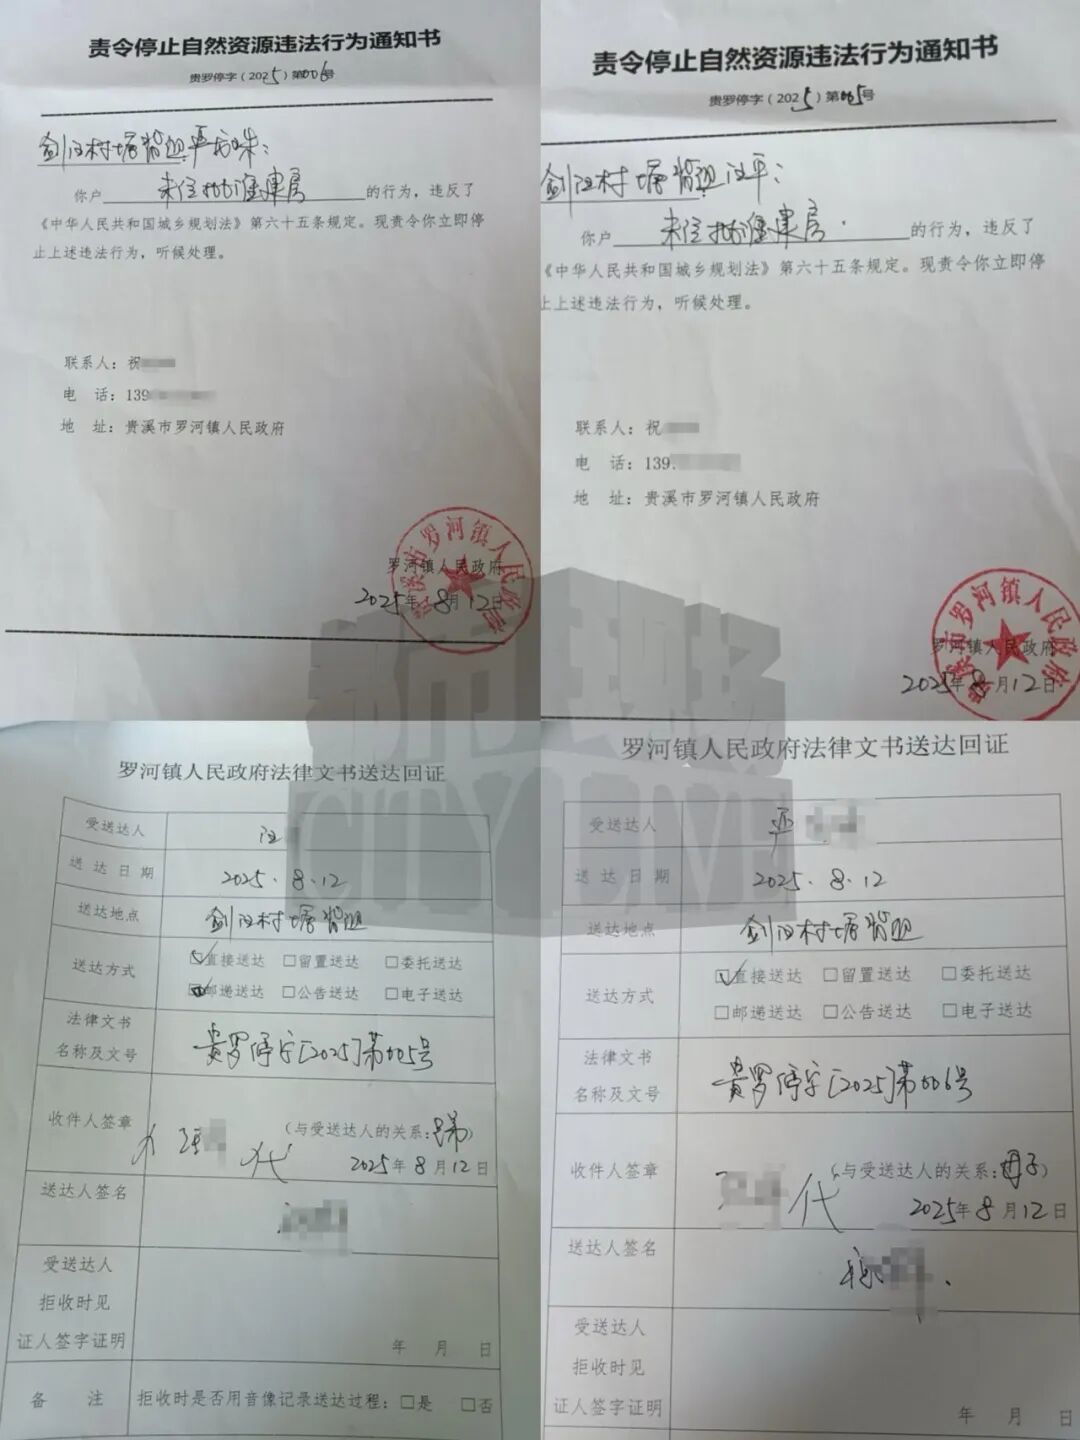 责令停止自然资源违法行为通知书
贵罗停字（2025）第006号
你户 未经批准建房 的行为，违反了
《中华人民共和国城乡规划法》第六十五条规定。现责令你立即停
止上述违法行为，听候处理。
联系人：祝
电 话：139
地 址：贵溪市罗河镇人民政府
罗河镇人民政府
2025年8月12日
责令停止自然资源违法行为通知书
贵罗停字（2025）第005号
你户 未经批准建房. 的行为，违反了
《中华人民共和国城乡规划法》第六十五条规定。现责令你立即停
止上述违法行为，听候处理。
联系人：祝
电 话：139.
地 址：贵溪市罗河镇人民政府
罗河镇人民政府
2025年8月12日
都市现场
CITY LIVE
罗河镇人民政府法律文书送达回证
受送达人 汪
送达日期 2025.8.12
送达地点
送达方式 直接送达 留置送达 委托送达
邮递送达 公告送达 电子送达
法律文书
名称及文号 贵罗停字[2025]第005号
收件人签章 代 （与受送达人的关系：）
2025年8月12日
送达人签名
受送达人
拒收时见
证人签字证明 年 月 日
备 注 拒收时是否用音像记录送达过程：□是 □否
罗河镇人民政府法律文书送达回证
受送达人 严
送达日期 2025.8.12
送达地点
送达方式 直接送达 留置送达 委托送达
邮递送达 公告送达 电子送达
法律文书
名称及文号 贵罗停字[2025]第006号
收件人签章 代 （与受送达人的关系：母子）
2025年8月12日
送达人签名
受送达人
拒收时见
证人签字证明 年 月 日